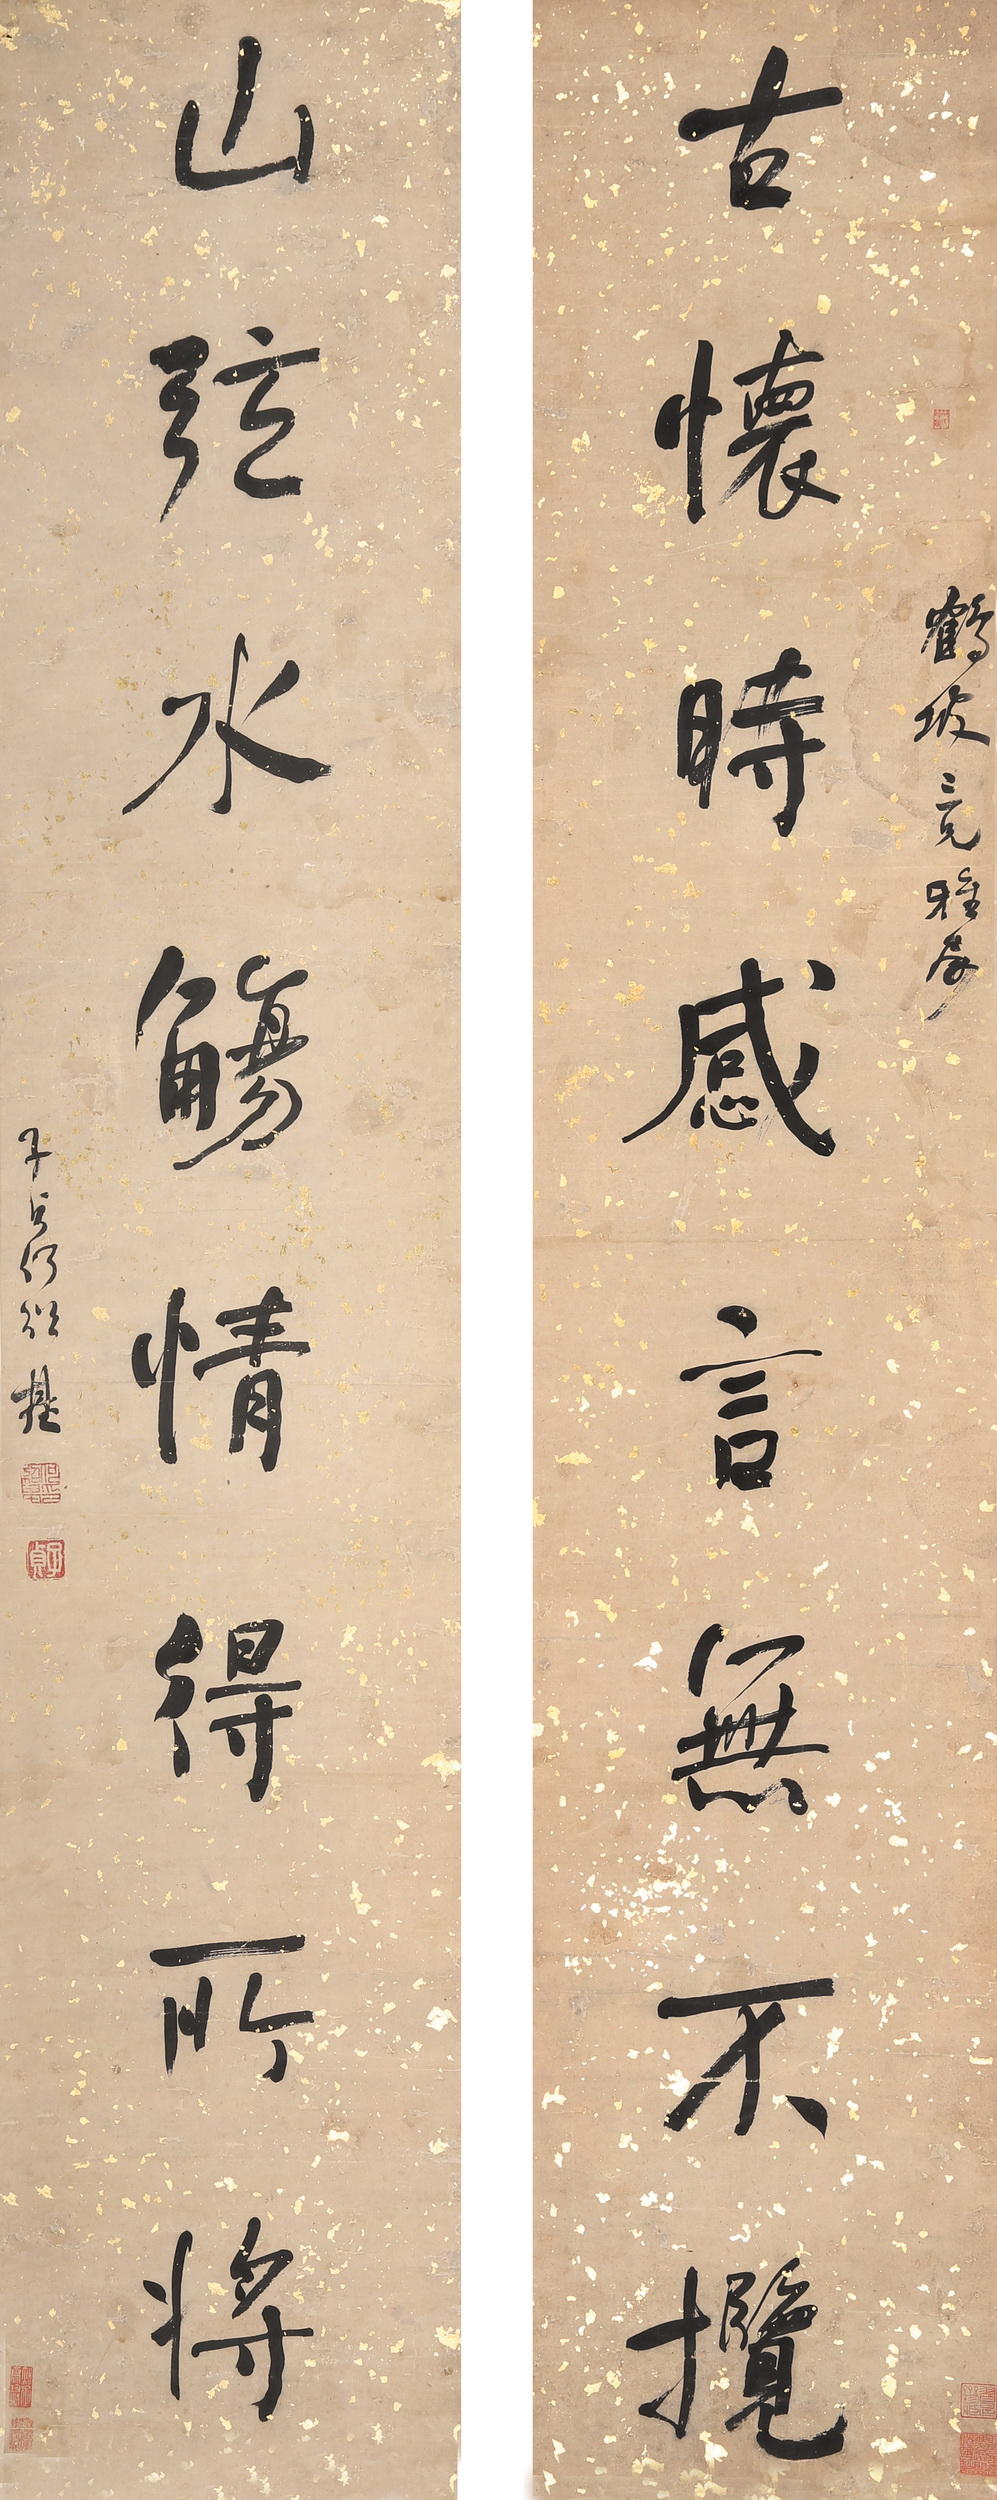 鶴坡三兄雅屬
古懷時感言無不攬
山弦水觴情得所將
子貞何紹基
子貞